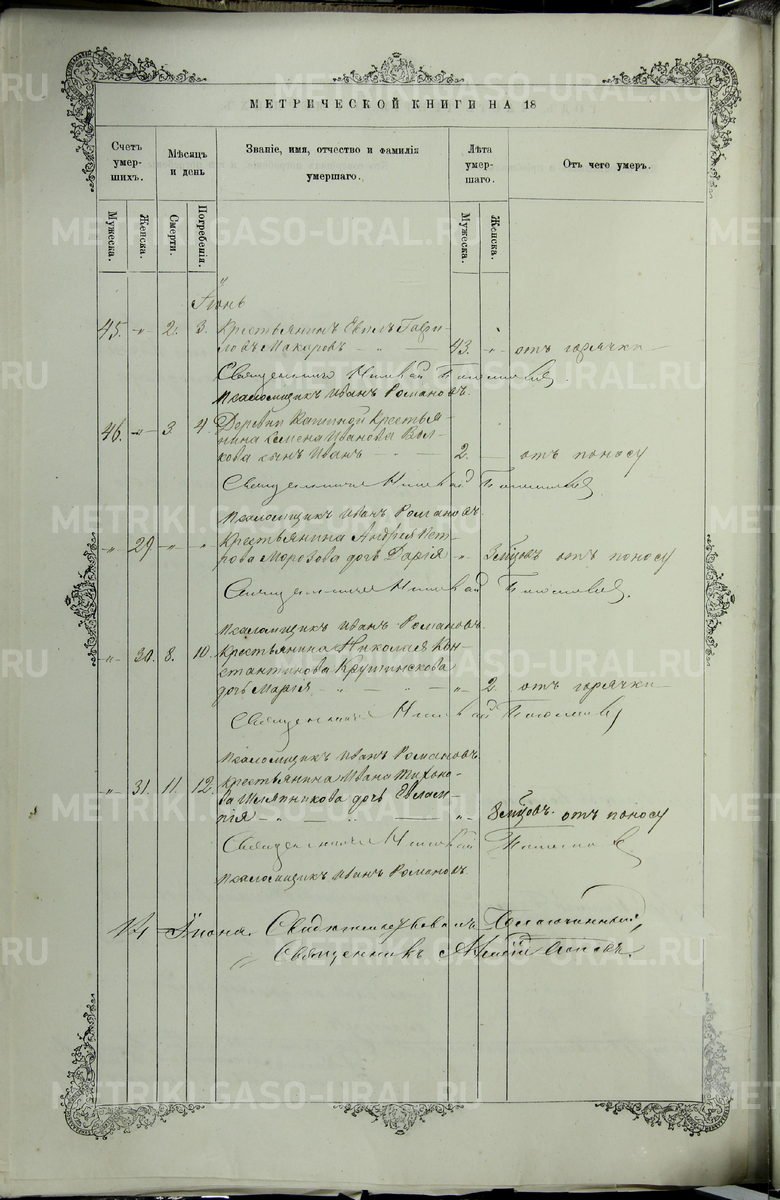 МЕТРИЧЕСКОЙ КНИГИ НА 18
Счетъ умершихъ.
Мѣсяцъ и день
Званіе, имя, отчество и фамилія умершаго.
Лѣта умершаго.
Отъ чего умеръ.
Мужеска.
Женска.
Смерти.
Погребенія.
Мужеска.
Женска.
Іюнь
45. -„- 2. 3. Крестьянинъ Гаври-
ловъ Макаровъ 43. -„- отъ горячки
Священникъ
Псаломщикъ Иванъ Романовъ.
46. -„- 3. 4. Деревни крестья-
нина Семена Иванова Вол-
кова сынъ Иванъ 2. отъ поносу
Священникъ
Псаломщикъ Иванъ Романовъ
-„- 29. -„- „ Крестьянина Андрея Пет-
рова Морозова дочь Дарія „ 3 мѣсцовъ отъ поносу
Священникъ
Псаломщикъ Иванъ Романовъ.
-„- 30. 8. 10. Крестьянина Николая Кон-
стантинова Крутинскова
дочь Марія -„- 2 отъ горячки
Священникъ
Псаломщикъ Иванъ Романовъ.
-„- 31. 11. 12. Крестьянина Ивана Тихоно-
ва Шляпникова дочь Евламп-
пія -„- 8 мѣсцовъ. отъ поносу
Священникъ
Псаломщикъ Иванъ Романовъ.
14 Іюня. Свидѣтельствовалъ Благочинный,
Священникъ Поповъ.
METRIKI.GASO-URAL.RU